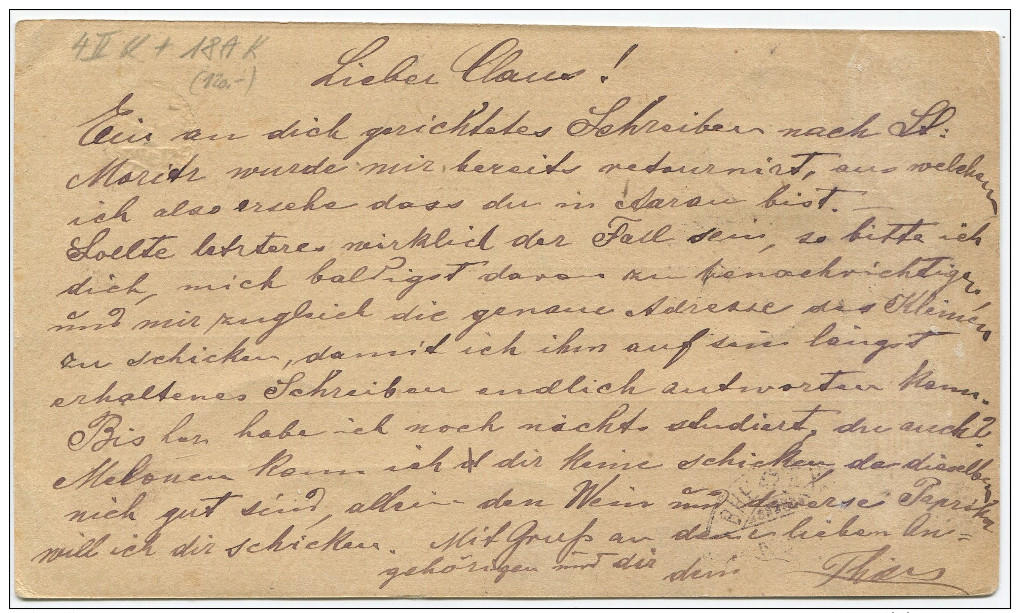 4 II K + 18 A K
(120.-)
Lieber Claus!
Ein an dich gericktetes Schreiben nach St:
Moritz wurde mir bereits retournirt, aus welchem
ich also ersehe dass du in Aarau bist. —
Sollte letzteres wirklich der Fall sein, so bitte ich
dich, mich baldigst davon zu benachrichtigen
und mir zugleich die genaue Adresse des Kleinen
zu schicken, damit ich ihm auf sein längst
erhaltenes Schreiben endlich antworten kann.
Bis her habe ich noch nichts studiert, du auch?
Melonen kann ich dir keine schicken, da dieselben
nich gut sind, allein den Wein und diverse Paprika
will ich dir schicken. Mit Gruß an deine lieben An=
gehörigen und dir
dein